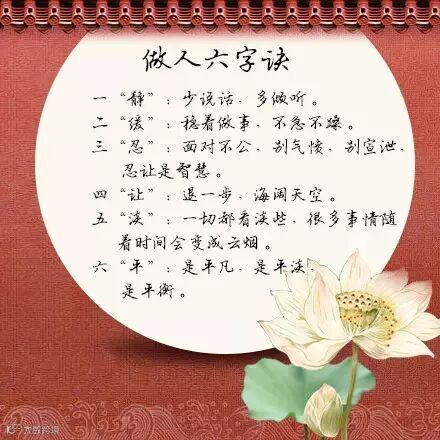 做人六字诀
一“静”：少说话，多倾听。
二“缓”：稳着做事，不急不躁。
三“忍”：面对不公，别气恼，别宣泄，
忍让是智慧。
四“让”：退一步，海阔天空。
五“淡”：一切都看淡些，很多事情随
着时间会变成云烟。
六“平”：是平凡，是平淡，
是平衡。
大数跨境